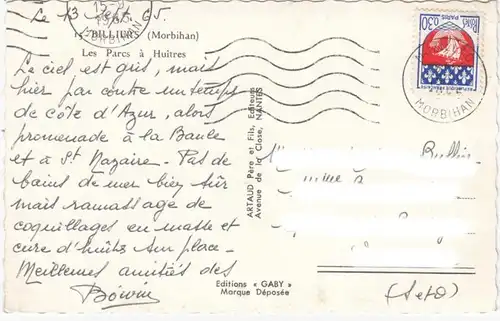 Le 13 Sept 65.
15 BILLIERS (Morbihan)
Les Parcs à Huîtres
Le ciel est gris, mais
hier par contre un temps
de côte d'Azur, alors
promenade à la Baule
et à St Nazaire. Pas de
bains de mer bien sûr
mais ramassage de
coquillages en masse et
cure d'huîtres sur place.
Meilleures amitiés des
ARTAUD Père et Fils, Editeurs
Avenue de la Close, NANTES
Editions « GABY »
Marque Déposée
0,30
Postes
PARIS
REPUBLIQUE FRANCAISE
MORBIHAN
MORBIHAN
(S et O)